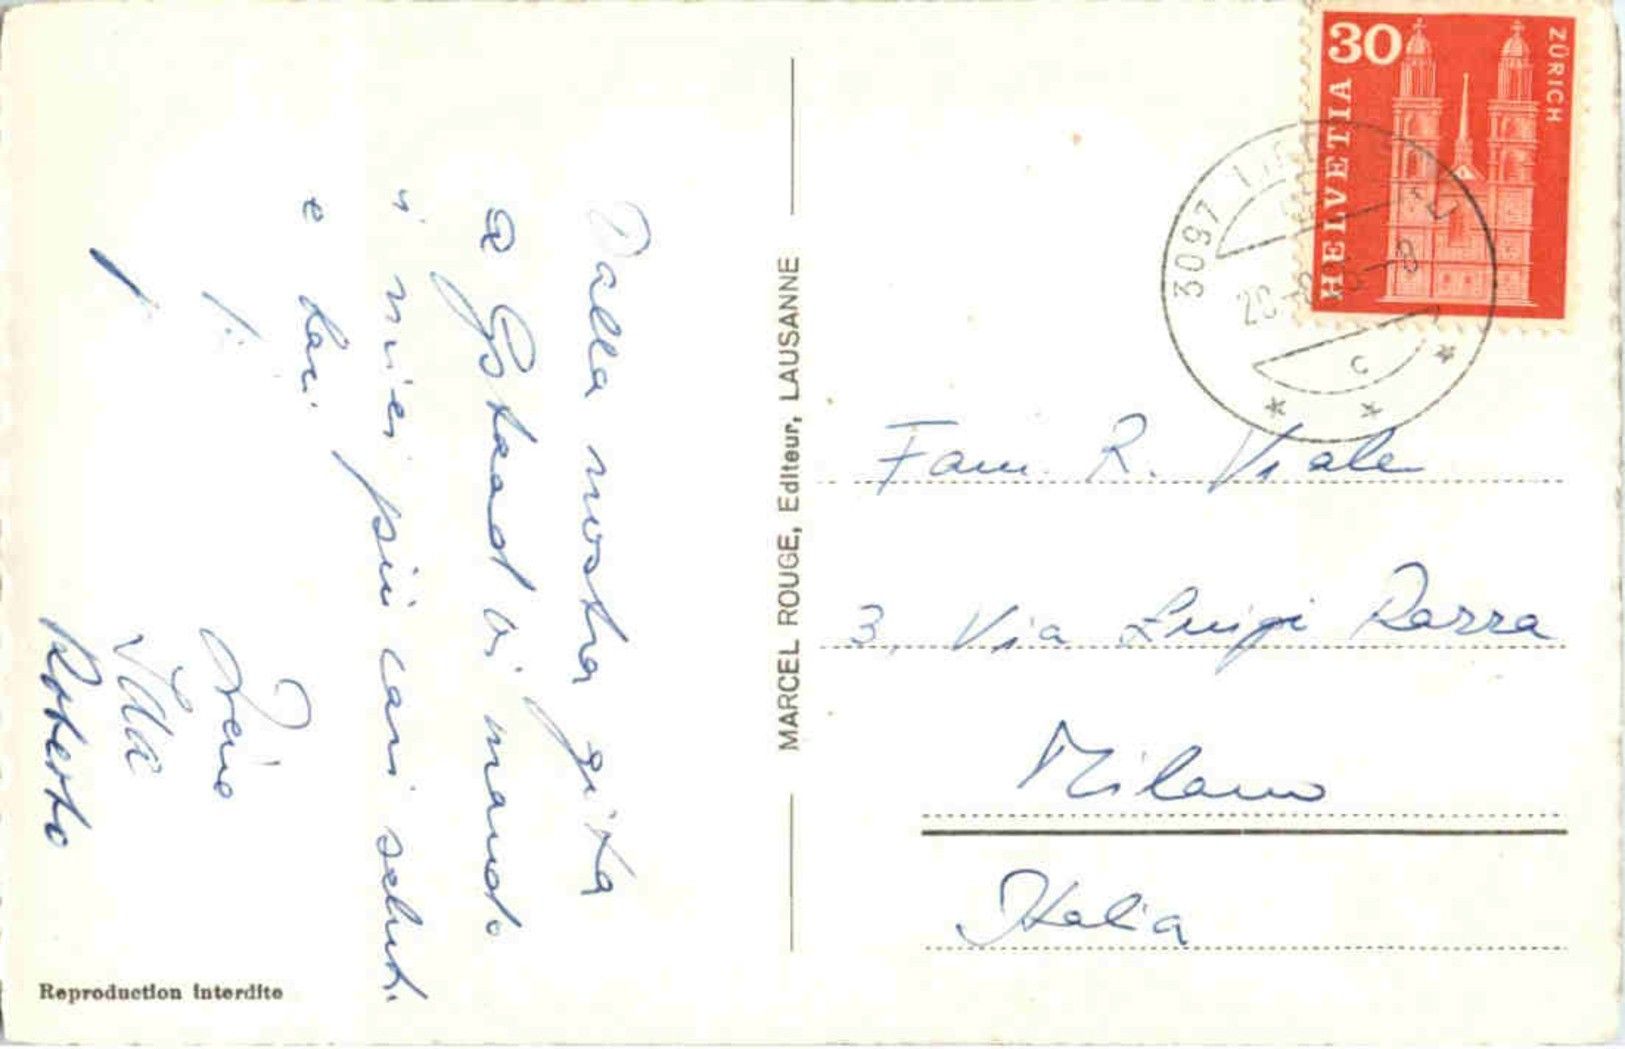 Dalla nostra gita
a Gstaad vi mando
i miei più cari saluti
e baci.
Roberto
Reproduction interdite
MARCEL ROUGE, Editeur, LAUSANNE
30
HELVETIA
ZÜRICH
3097
Fam. R. Viale
3, Via Luigi Razza
Milano
Italia